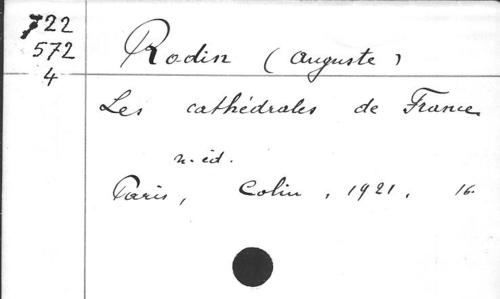 722
572
4
Rodin (Auguste)
Les cathédrales de France
n. éd.
Paris, Colin, 1921. 16.